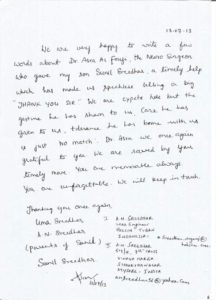 13-07-13
We are very happy to write a few
words about Dr. Asra Al Fauzi, the Neuro Surgeon
who gave my son Sunil Sreedhar, a timely help
which has made us speechless telling a big
"THANK YOU SIR" We are expats here but the
gesture he has shown to us, Care he has
given to us, & tolerance he has borne with us
is just no match. Dr. Asra we once again
grateful to you. We are saved by your
timely move. You are memorable always
You are unforgettable. We will keep in touch.
Thanking you once again
Uma Sreedhar
A.N. Sreedhar
(parents of Sunil)
Sunil Sreedhar
A.N. SREEDHAR
INDONESIA
A.N. SREEDHAR
MYSORE - INDIA